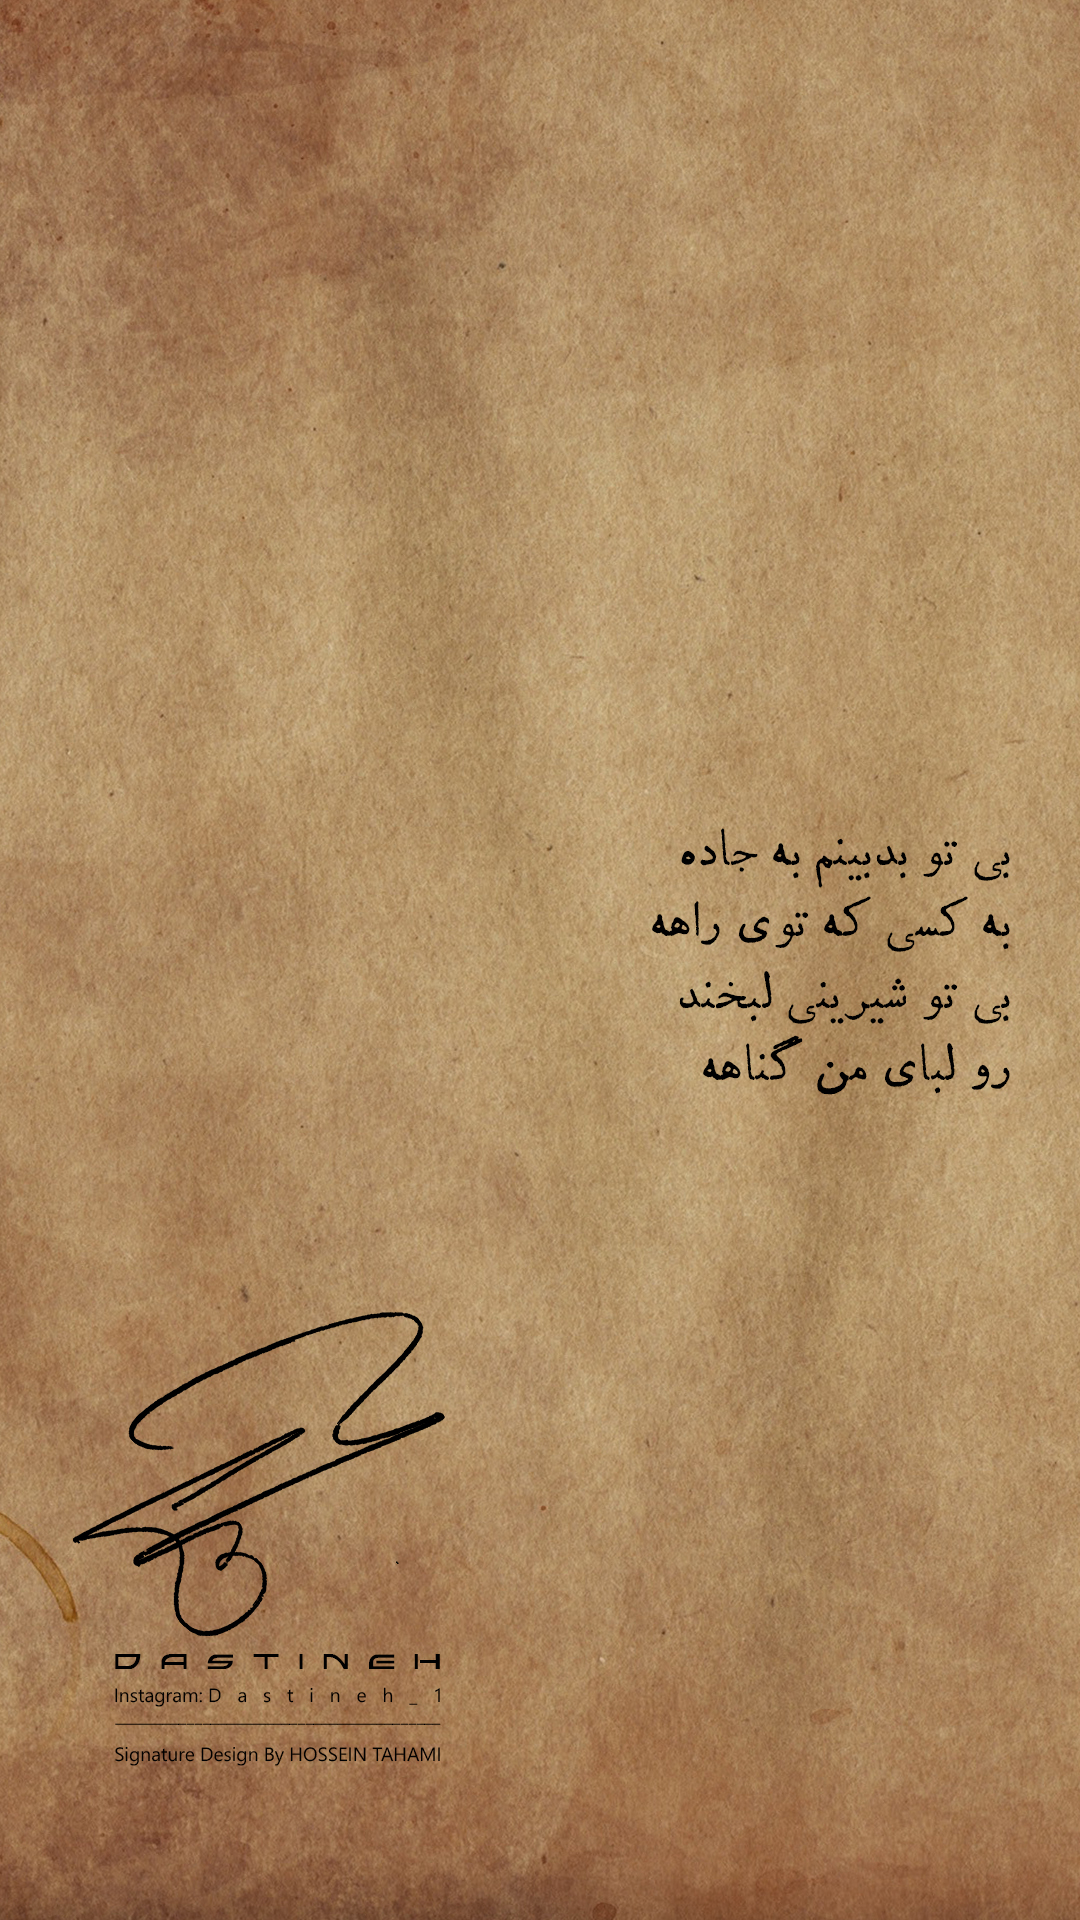 بی تو بدبینم به جاده
به کسی که توی راهه
بی تو شیرینی لبخند
رو لبای من گناهه
DASTINEH
Instagram: Dastineh_1
Signature Design By HOSSEIN TAHAMI